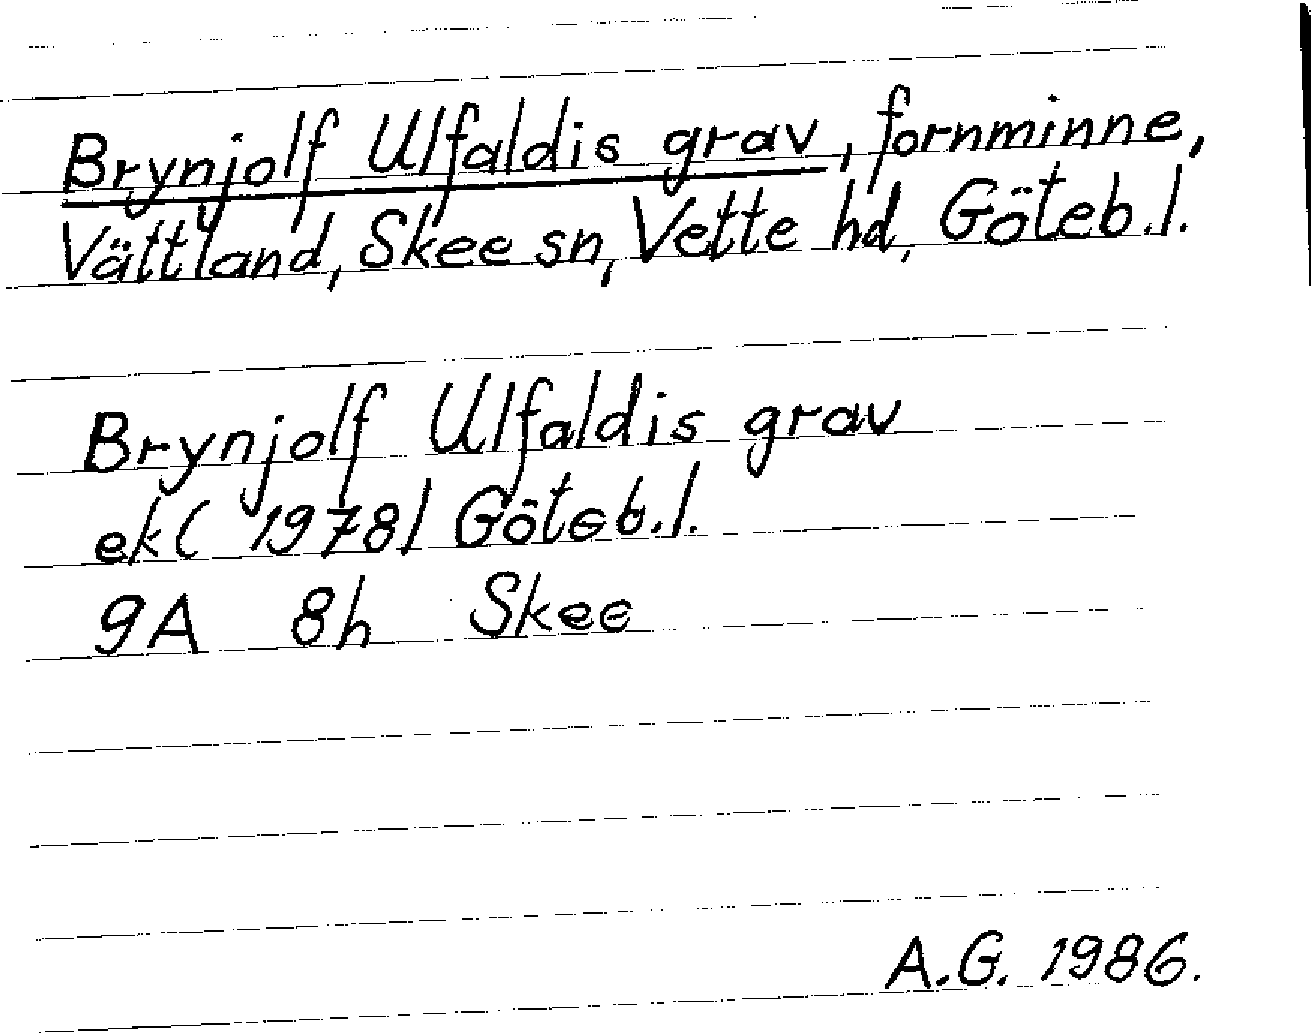 Brynjolf Ulfaldis grav, fornminne,
Vättland, Skee sn, Vette hd, Göteb.l.
Brynjolf Ulfaldis grav
ek( 1978) Göteb.l.
9A 8h Skee
A.G. 1986.